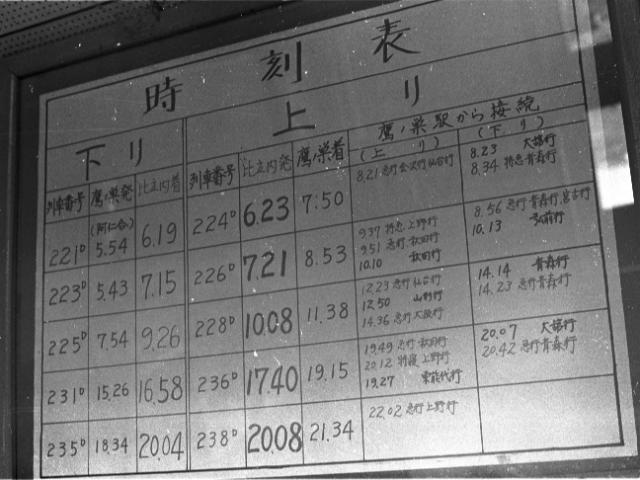 時刻表
下り
上り
鷹ノ巣駅から接続
(上り)
(下り)
列車番号 鷹ノ巣発 比立内着 列車番号 比立内発 鷹ノ巣着
221D (阿仁合) 5.54 6.19 224D 6.23 7:50
8.21 急行 仙台行
8.23 大舘行
8.34 特急 青森行
223D 5.43 7.15 226D 7.21 8.53
9.37 特急 上野行
9.51 急行 秋田行
10.10 秋田行
8.56 急行 青森行、宮古行
10.13 弘前行
225D 7.54 9.26 228D 10.08 11.38
12.23 急行 仙台行
12.50 山形行
14.36 急行 大阪行
14.14 青森行
14.23 急行 青森行
231D 15.26 16.58 236D 17.40 19.15
19.49 急行 秋田行
20.12 特急 上野行
19.27 東能代行
20.07 大舘行
20.42 急行 青森行
235D 18.34 20.04 238D 20.08 21.34
22.02 急行 上野行